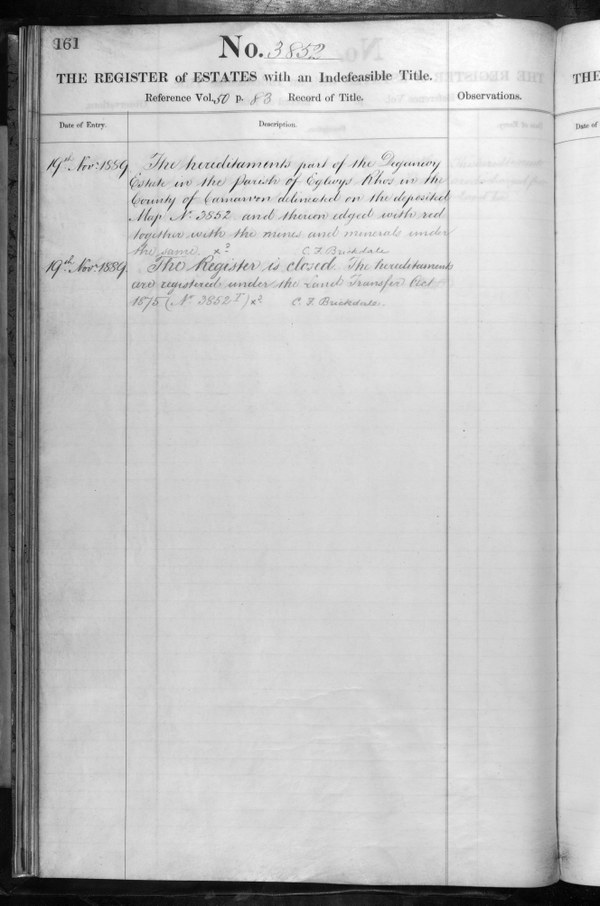 161
No. 3852
THE REGISTER of ESTATES with an Indefeasible Title.
Reference Vol. 50 p. 83 Record of Title.
Observations.
Date of Entry.
Description.
19th Nov. 1889
The hereditaments part of the Deganwy
Estate in the Parish of Eglwys Rhos in the
County of Carnarvon delineated on the deposited
Map No. 3852 and thereon edged with red
together with the mines and minerals under
the same. C. F. Brickdale
19th Nov. 1889.
The Register is closed. The hereditaments
are registered under the Land Transfer Act
1875 (No. 3852 T) C. F. Brickdale.
THE
Date of